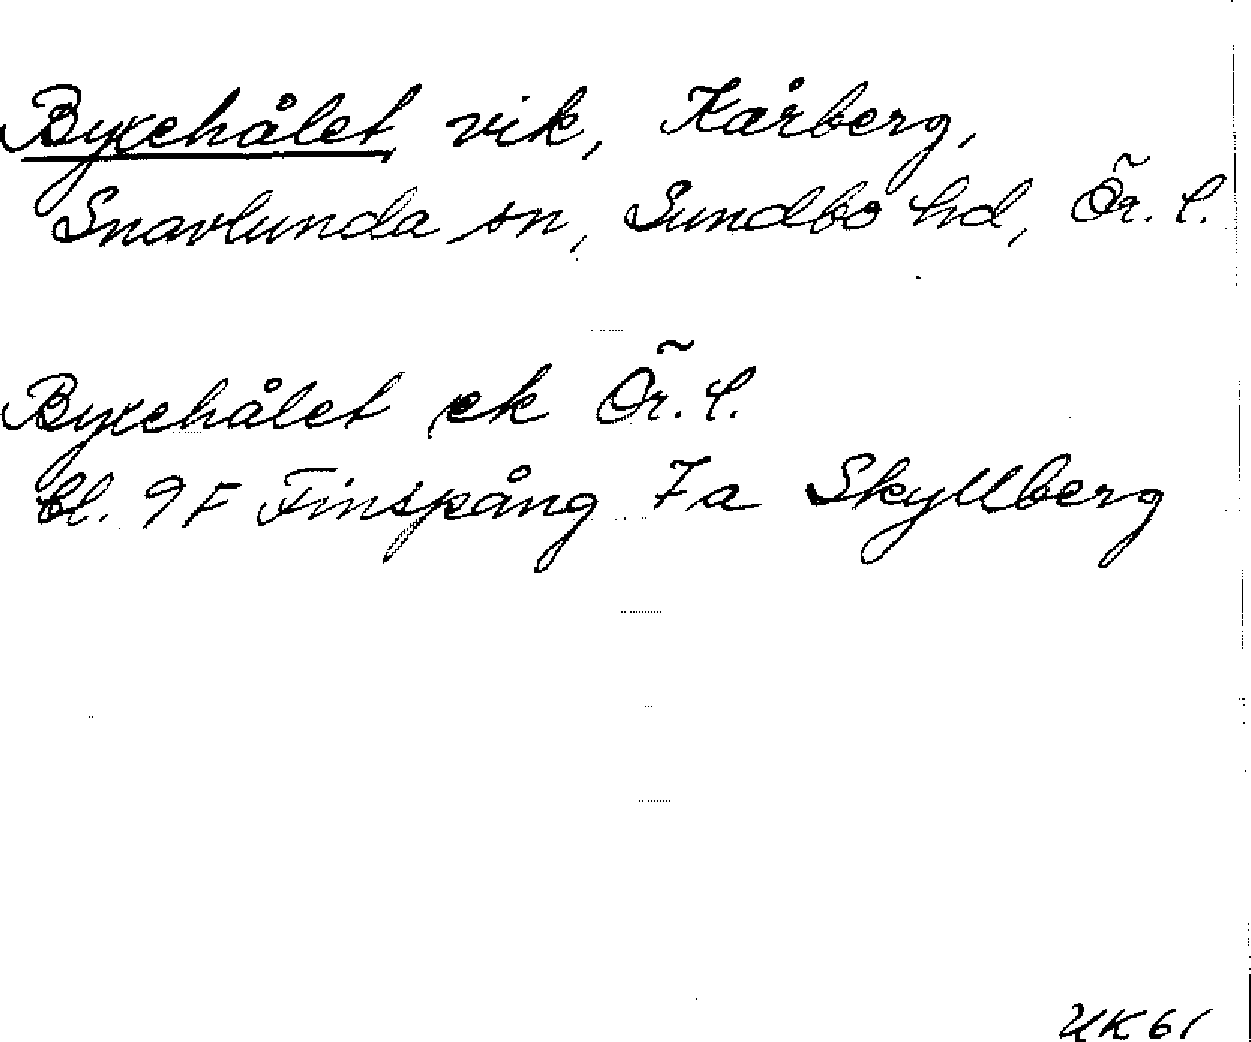 Byxehålet vik, Kårberg,
Snavlunda sn, Sundbo hd, Ör. l.
Byxehålet ek Ör. l.
bl. 9F Finspång 7a Skyllberg
UK61